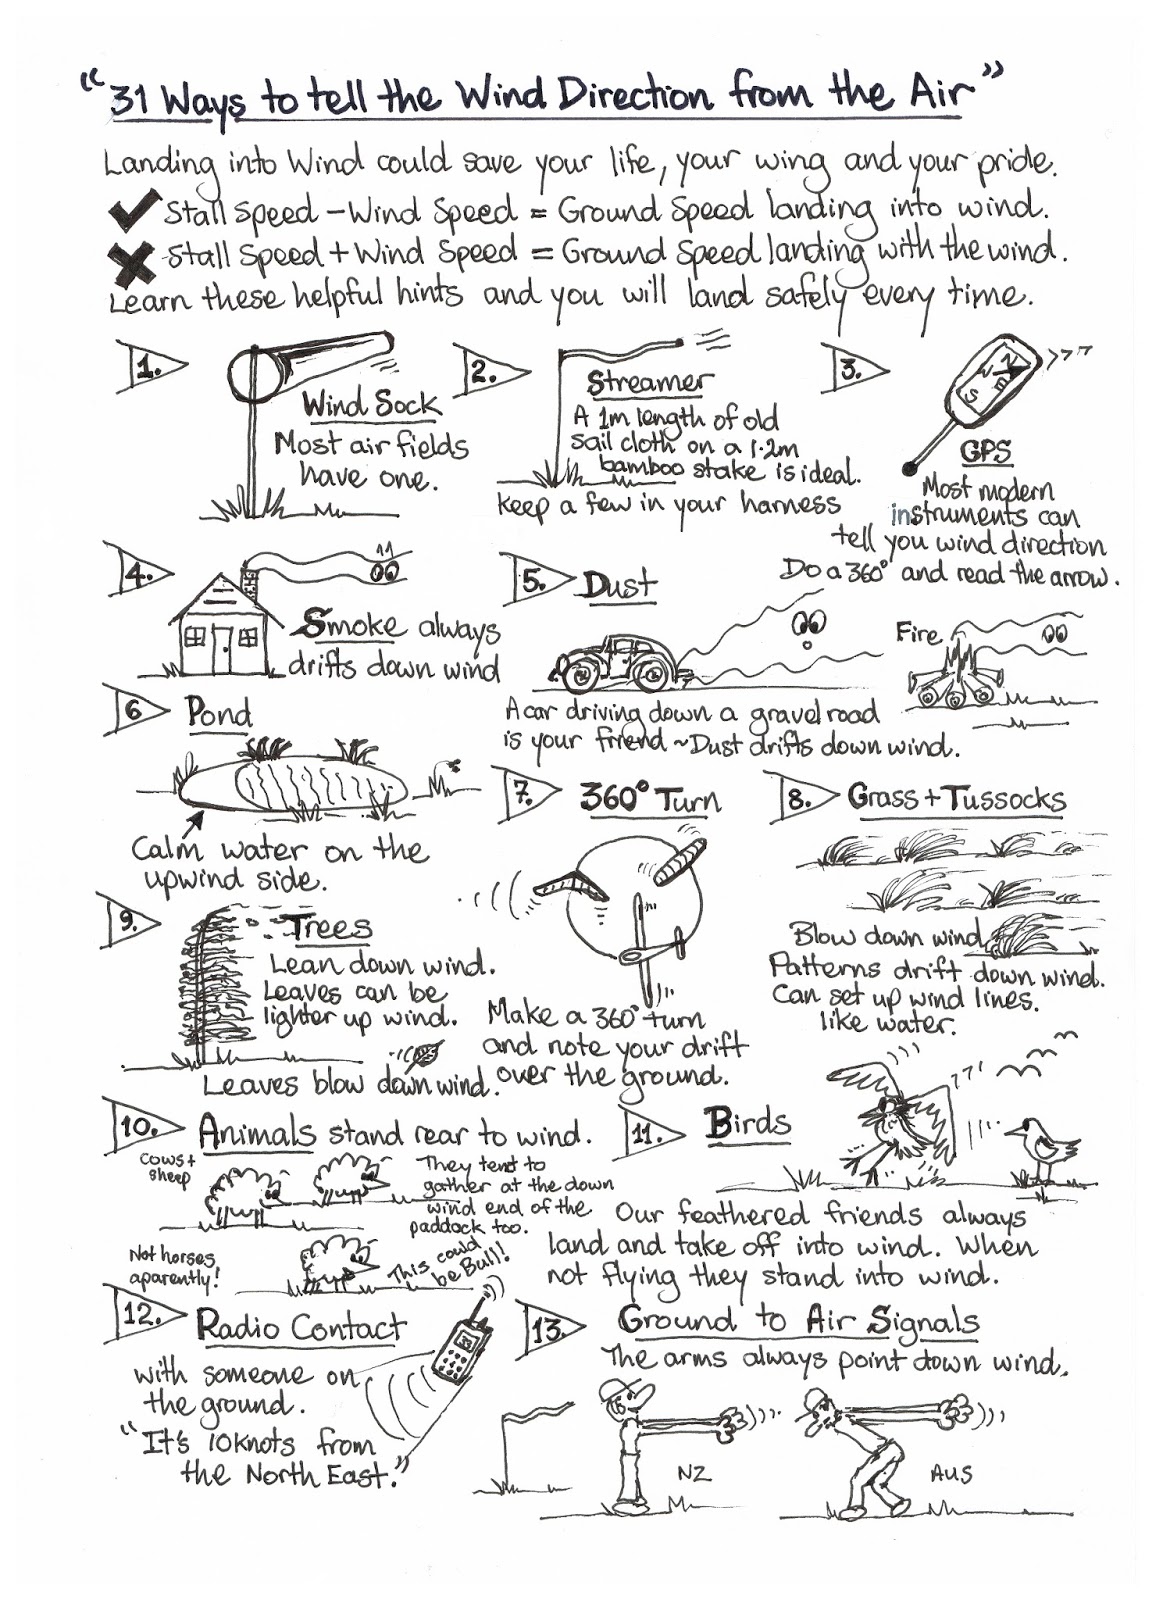 "31 Ways to tell the Wind Direction from the Air"
Landing into Wind could save your life, your wing and your pride.
Stall Speed - Wind Speed = Ground Speed landing into wind.
Stall Speed + Wind Speed = Ground Speed landing with the wind.
Learn these helpful hints and you will land safely every time.
1.
Wind Sock
Most air fields
have one.
2.
Streamer
A 1m length of old
sail cloth on a 1.2m
bamboo stake is ideal.
keep a few in your harness
3.
GPS
Most modern
instruments can
tell you wind direction
Do a 360° and read the arrow.
4.
Smoke always
drifts down wind
5.
Dust
Fire
A car driving down a gravel road
is your friend ~ Dust drifts down wind.
6
Pond
Calm water on the
upwind side.
7.
360° Turn
Make a 360° turn
and note your drift
over the ground.
8.
Grass + Tussocks
Blow down wind
Patterns drift down wind.
Can set up wind lines.
like water.
9.
Trees
Lean down wind.
Leaves can be
lighter up wind.
Leaves blow down wind.
10.
Animals stand rear to wind.
Cows +
sheep
They tend to
gather at the down
wind end of the
paddock too.
Not horses,
aparently!
This could
be Bull!
11.
Birds
Our feathered friends always
land and take off into wind. When
not flying they stand into wind.
12.
Radio Contact
with someone on
the ground.
"It's 10knots from
the North East."
13.
Ground to Air Signals
The arms always point down wind.
NZ
AUS